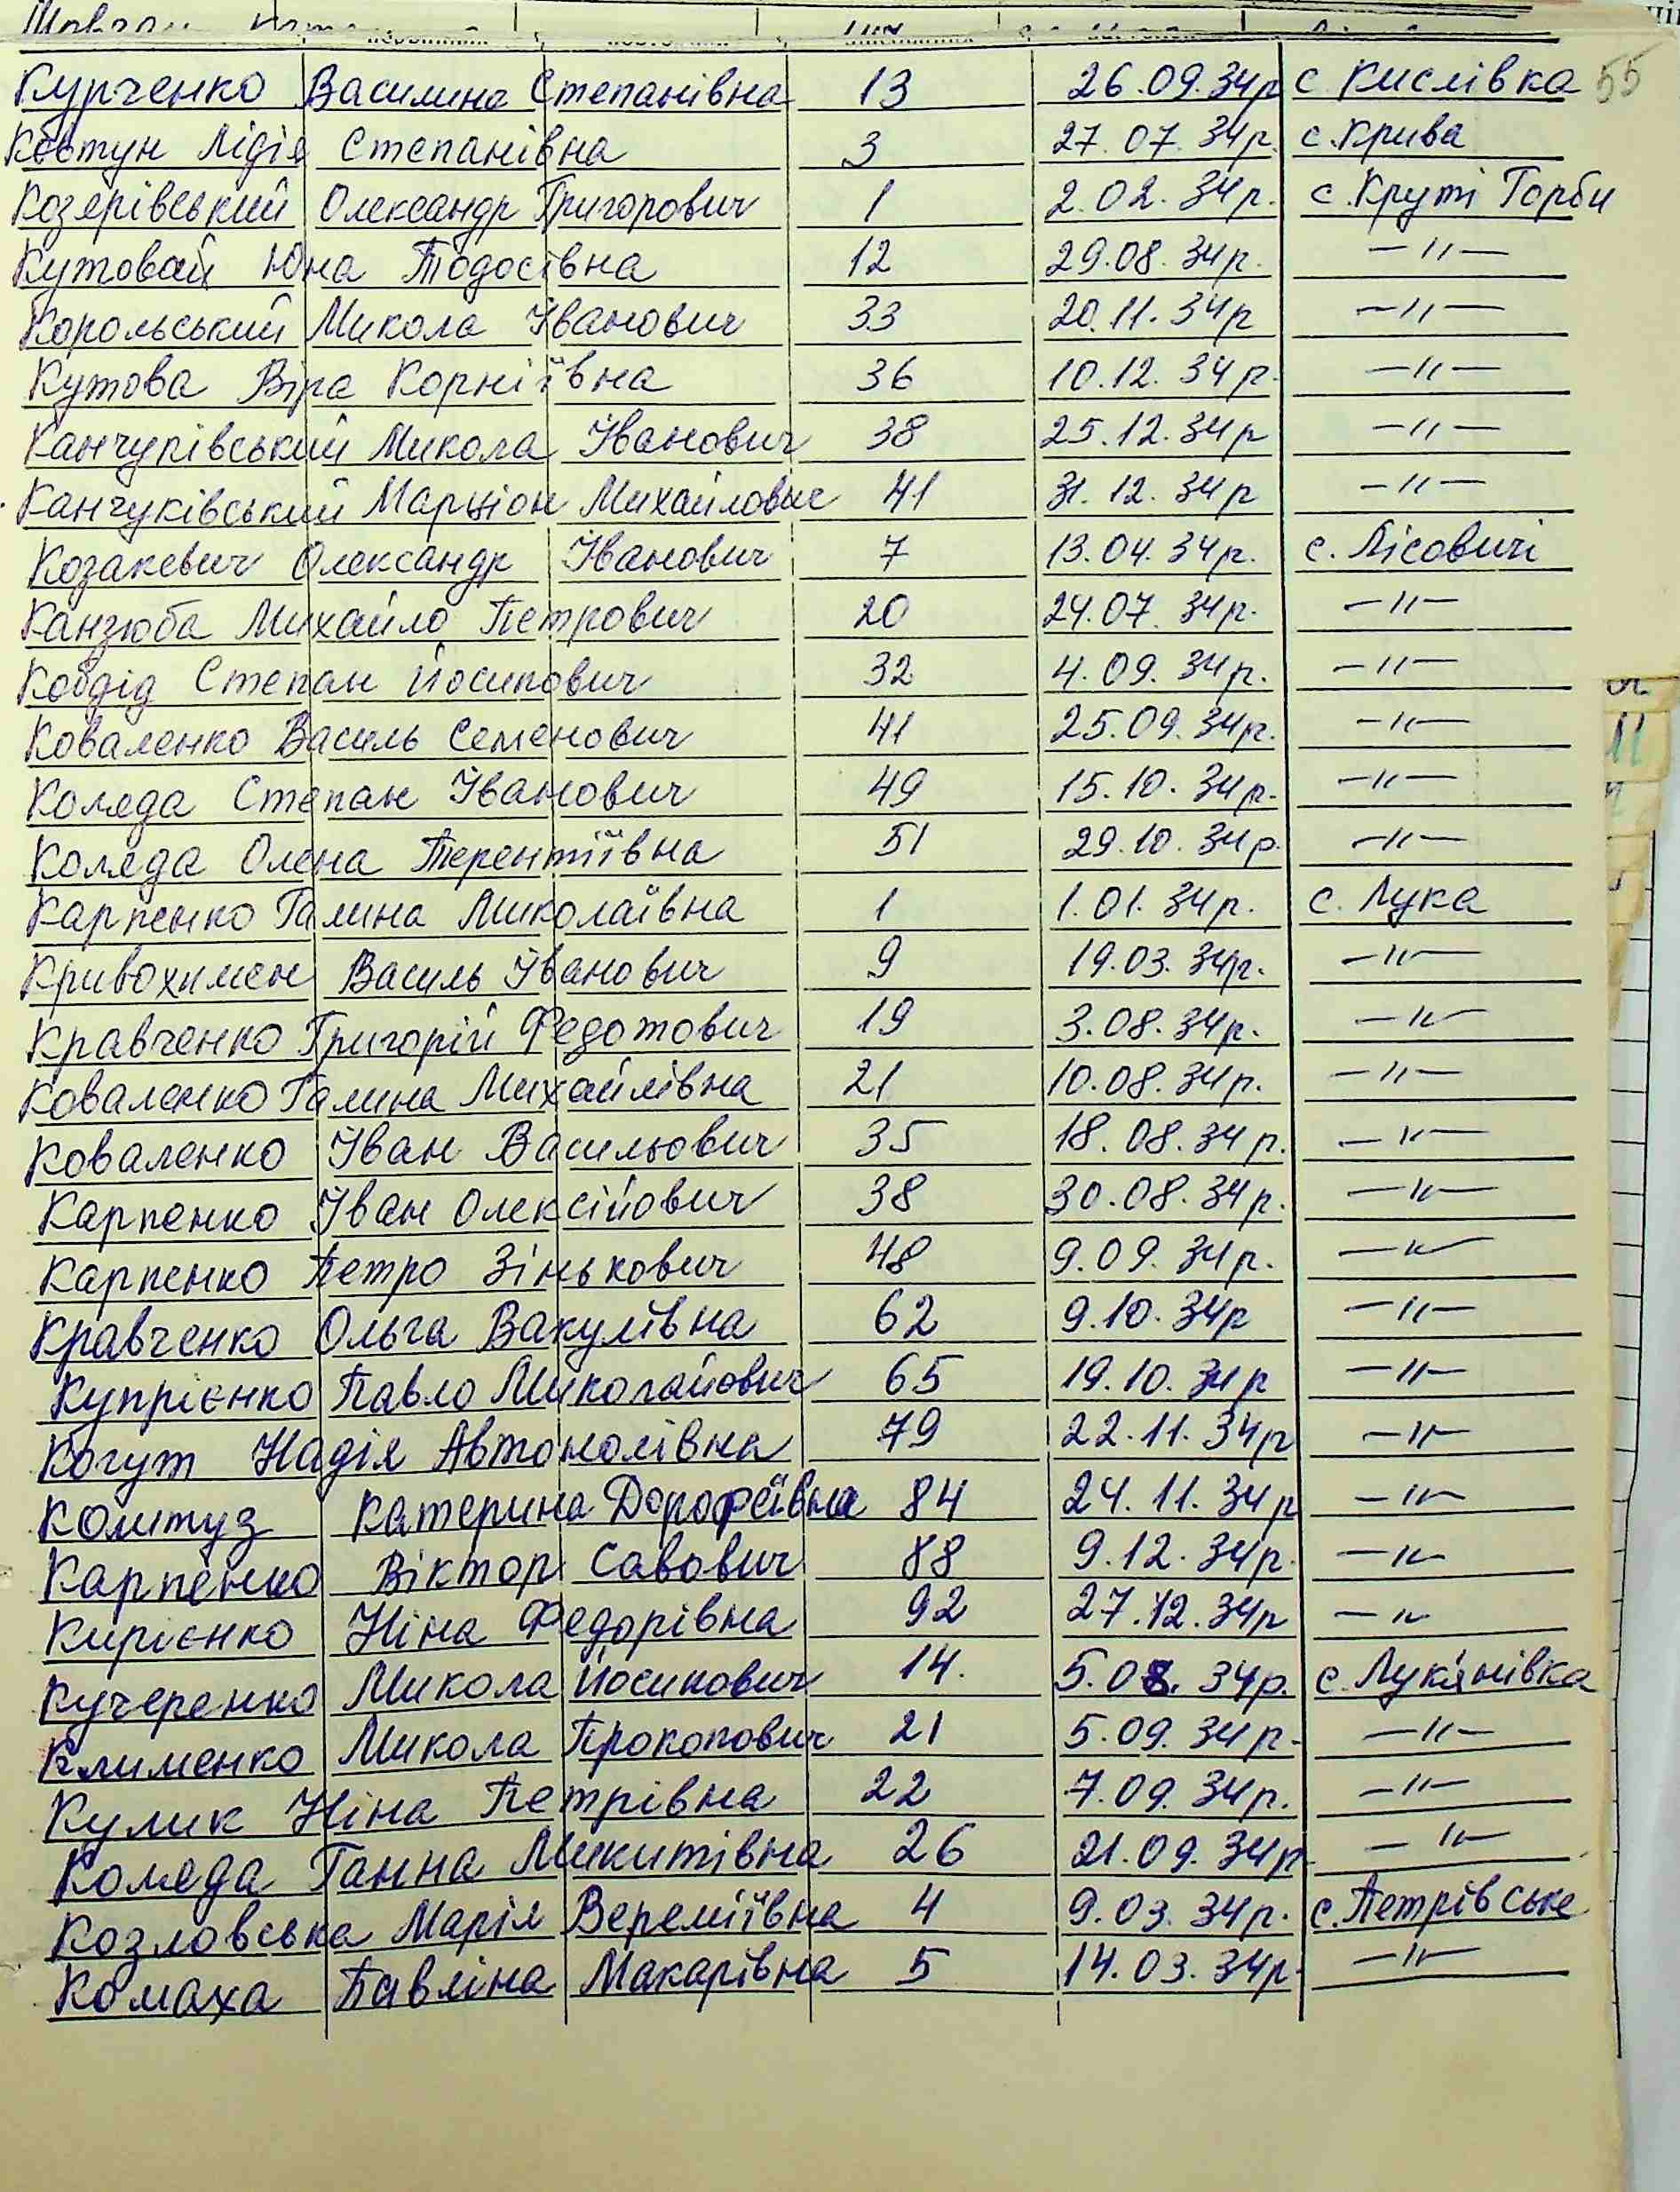 55
Курченко Василина Степанівна 13 26.09.34р с Кислівка
Ковтун Лідія Степанівна 3 27.07.34р. с.Крива
Козерівський Олександр Григорович 1 2.02.34р. с.Круті Горби
Кутовай Юна Тодосівна 12 29.08.34р. —〃—
Корольський Микола Іванович 33 20.11.34р —〃—
Кутова Віра Корніївна 36 10.12.34р. —〃—
Канчурівський Микола Іванович 38 25.12.34р —〃—
Канчуківський Марціон Михайлович 41 31.12.34р —〃—
Козакевич Олександр Іванович 7 13.04.34р. с. Лісовичі
Канзюба Михайло Петрович 20 24.07.34р. —〃—
Кобдід Степан Йосипович 32 4.09.34р. —〃—
Коваленко Василь Семенович 41 25.09.34р. —〃—
Коляда Степан Іванович 49 15.10.34р. —〃—
Коляда Олена Терентіївна 51 29.10.34р. —〃—
Карпенко Галина Миколаївна 1 1.01.34р. с. Лука
Кривохимен Василь Іванович 9 19.03.34р. —〃—
Кравченко Григорій Федотович 19 3.08.34р. —〃—
Коваленко Галина Михайлівна 21 10.08.34р. —〃—
Коваленко Іван Васильович 35 18.08.34р. —〃—
Карпенко Іван Олексійович 38 30.08.34р. —〃—
Карпенко Петро Зінькович 48 9.09.34р. —〃—
Кравченко Ольга Вакулівна 62 9.10.34р —〃—
Купрієнко Павло Миколайович 65 19.10.34р —〃—
Когут Надія Автономівна 79 22.11.34р —〃—
Колтуз Катерина Дорофеївна 84 24.11.34р —〃—
Карпенко Віктор Савович 88 9.12.34р. —〃—
Кирієнко Ніна Федорівна 92 27.12.34р —〃—
Кучеренко Микола Йосипович 14. 5.08.34р. с.Лук'янівка
Клименко Микола Прокопович 21 5.09.34р. —〃—
Кулик Ніна Петрівна 22 7.09.34р. —〃—
Коляда Ганна Микитівна 26 21.09.34р. —〃—
Козловська Марія Вереміївна 4 9.03.34р. с.Петрівське
Комаха Павліна Макарівна 5 14.03.34р. —〃—